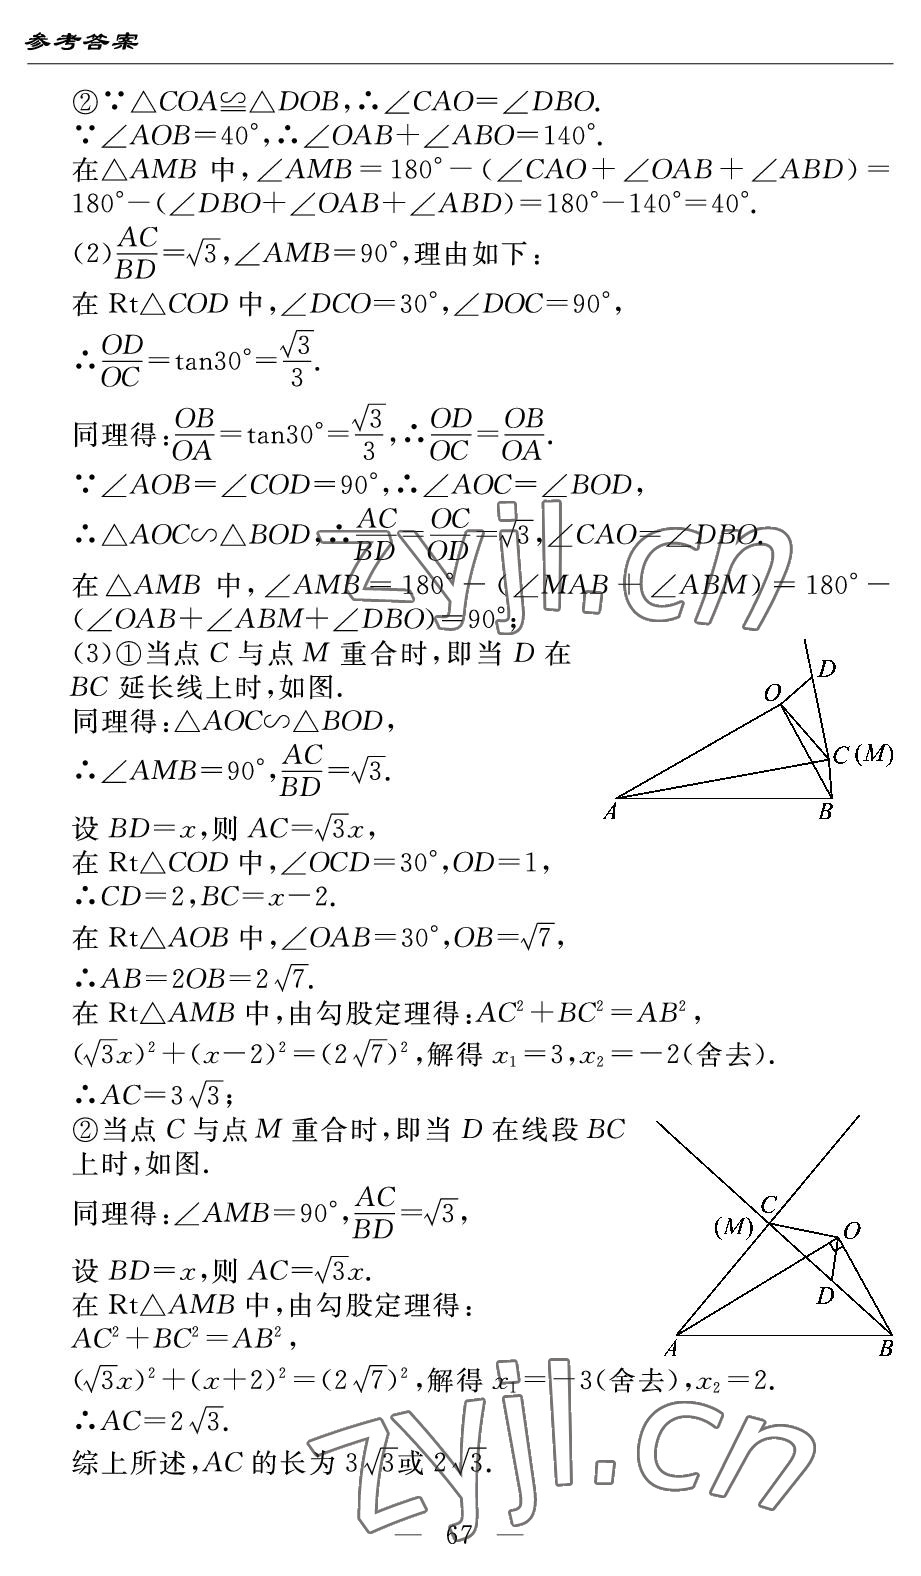 参考答案
②∵△COA≌△DOB,∴∠CAO=∠DBO.
∵∠AOB=40°,∴∠OAB+∠ABO=140°.
在△AMB 中,∠AMB=180°-(∠CAO+∠OAB+∠ABD)=
180°-(∠DBO+∠OAB+∠ABD)=180°-140°=40°.
(2)AC/BD=√3,∠AMB=90°,理由如下:
在 Rt△COD 中,∠DCO=30°,∠DOC=90°,
∴OD/OC=tan30°=√3/3.
同理得:OB/OA=tan30°=√3/3,∴OD/OC=OB/OA.
∵∠AOB=∠COD=90°,∴∠AOC=∠BOD,
∴△AOC∽△BOD,∴AC/BD=OC/OD=√3,∠CAO=∠DBO.
在△AMB 中,∠AMB=180°-(∠MAB+∠ABM)=180°-
(∠OAB+∠ABM+∠DBO)=90°;
(3)①当点 C 与点 M 重合时,即当 D 在
BC 延长线上时,如图.
同理得:△AOC∽△BOD,
∴∠AMB=90°,AC/BD=√3.
设 BD=x,则 AC=√3x,
在 Rt△COD 中,∠OCD=30°,OD=1,
∴CD=2,BC=x-2.
在 Rt△AOB 中,∠OAB=30°,OB=√7,
∴AB=2OB=2√7.
在 Rt△AMB 中,由勾股定理得:AC²+BC²=AB²,
(√3x)²+(x-2)²=(2√7)²,解得 x₁=3,x₂=-2(舍去).
∴AC=3√3;
②当点 C 与点 M 重合时,即当 D 在线段 BC
上时,如图.
同理得:∠AMB=90°,AC/BD=√3,
设 BD=x,则 AC=√3x.
在 Rt△AMB 中,由勾股定理得:
AC²+BC²=AB²,
(√3x)²+(x+2)²=(2√7)²,解得 x₁=-3(舍去),x₂=2.
∴AC=2√3.
综上所述,AC 的长为 3√3或 2√3.
D
O
C(M)
A
B
C
(M)
O
D
A
B
zyjl.cn
zyjl.cn
— 67 —